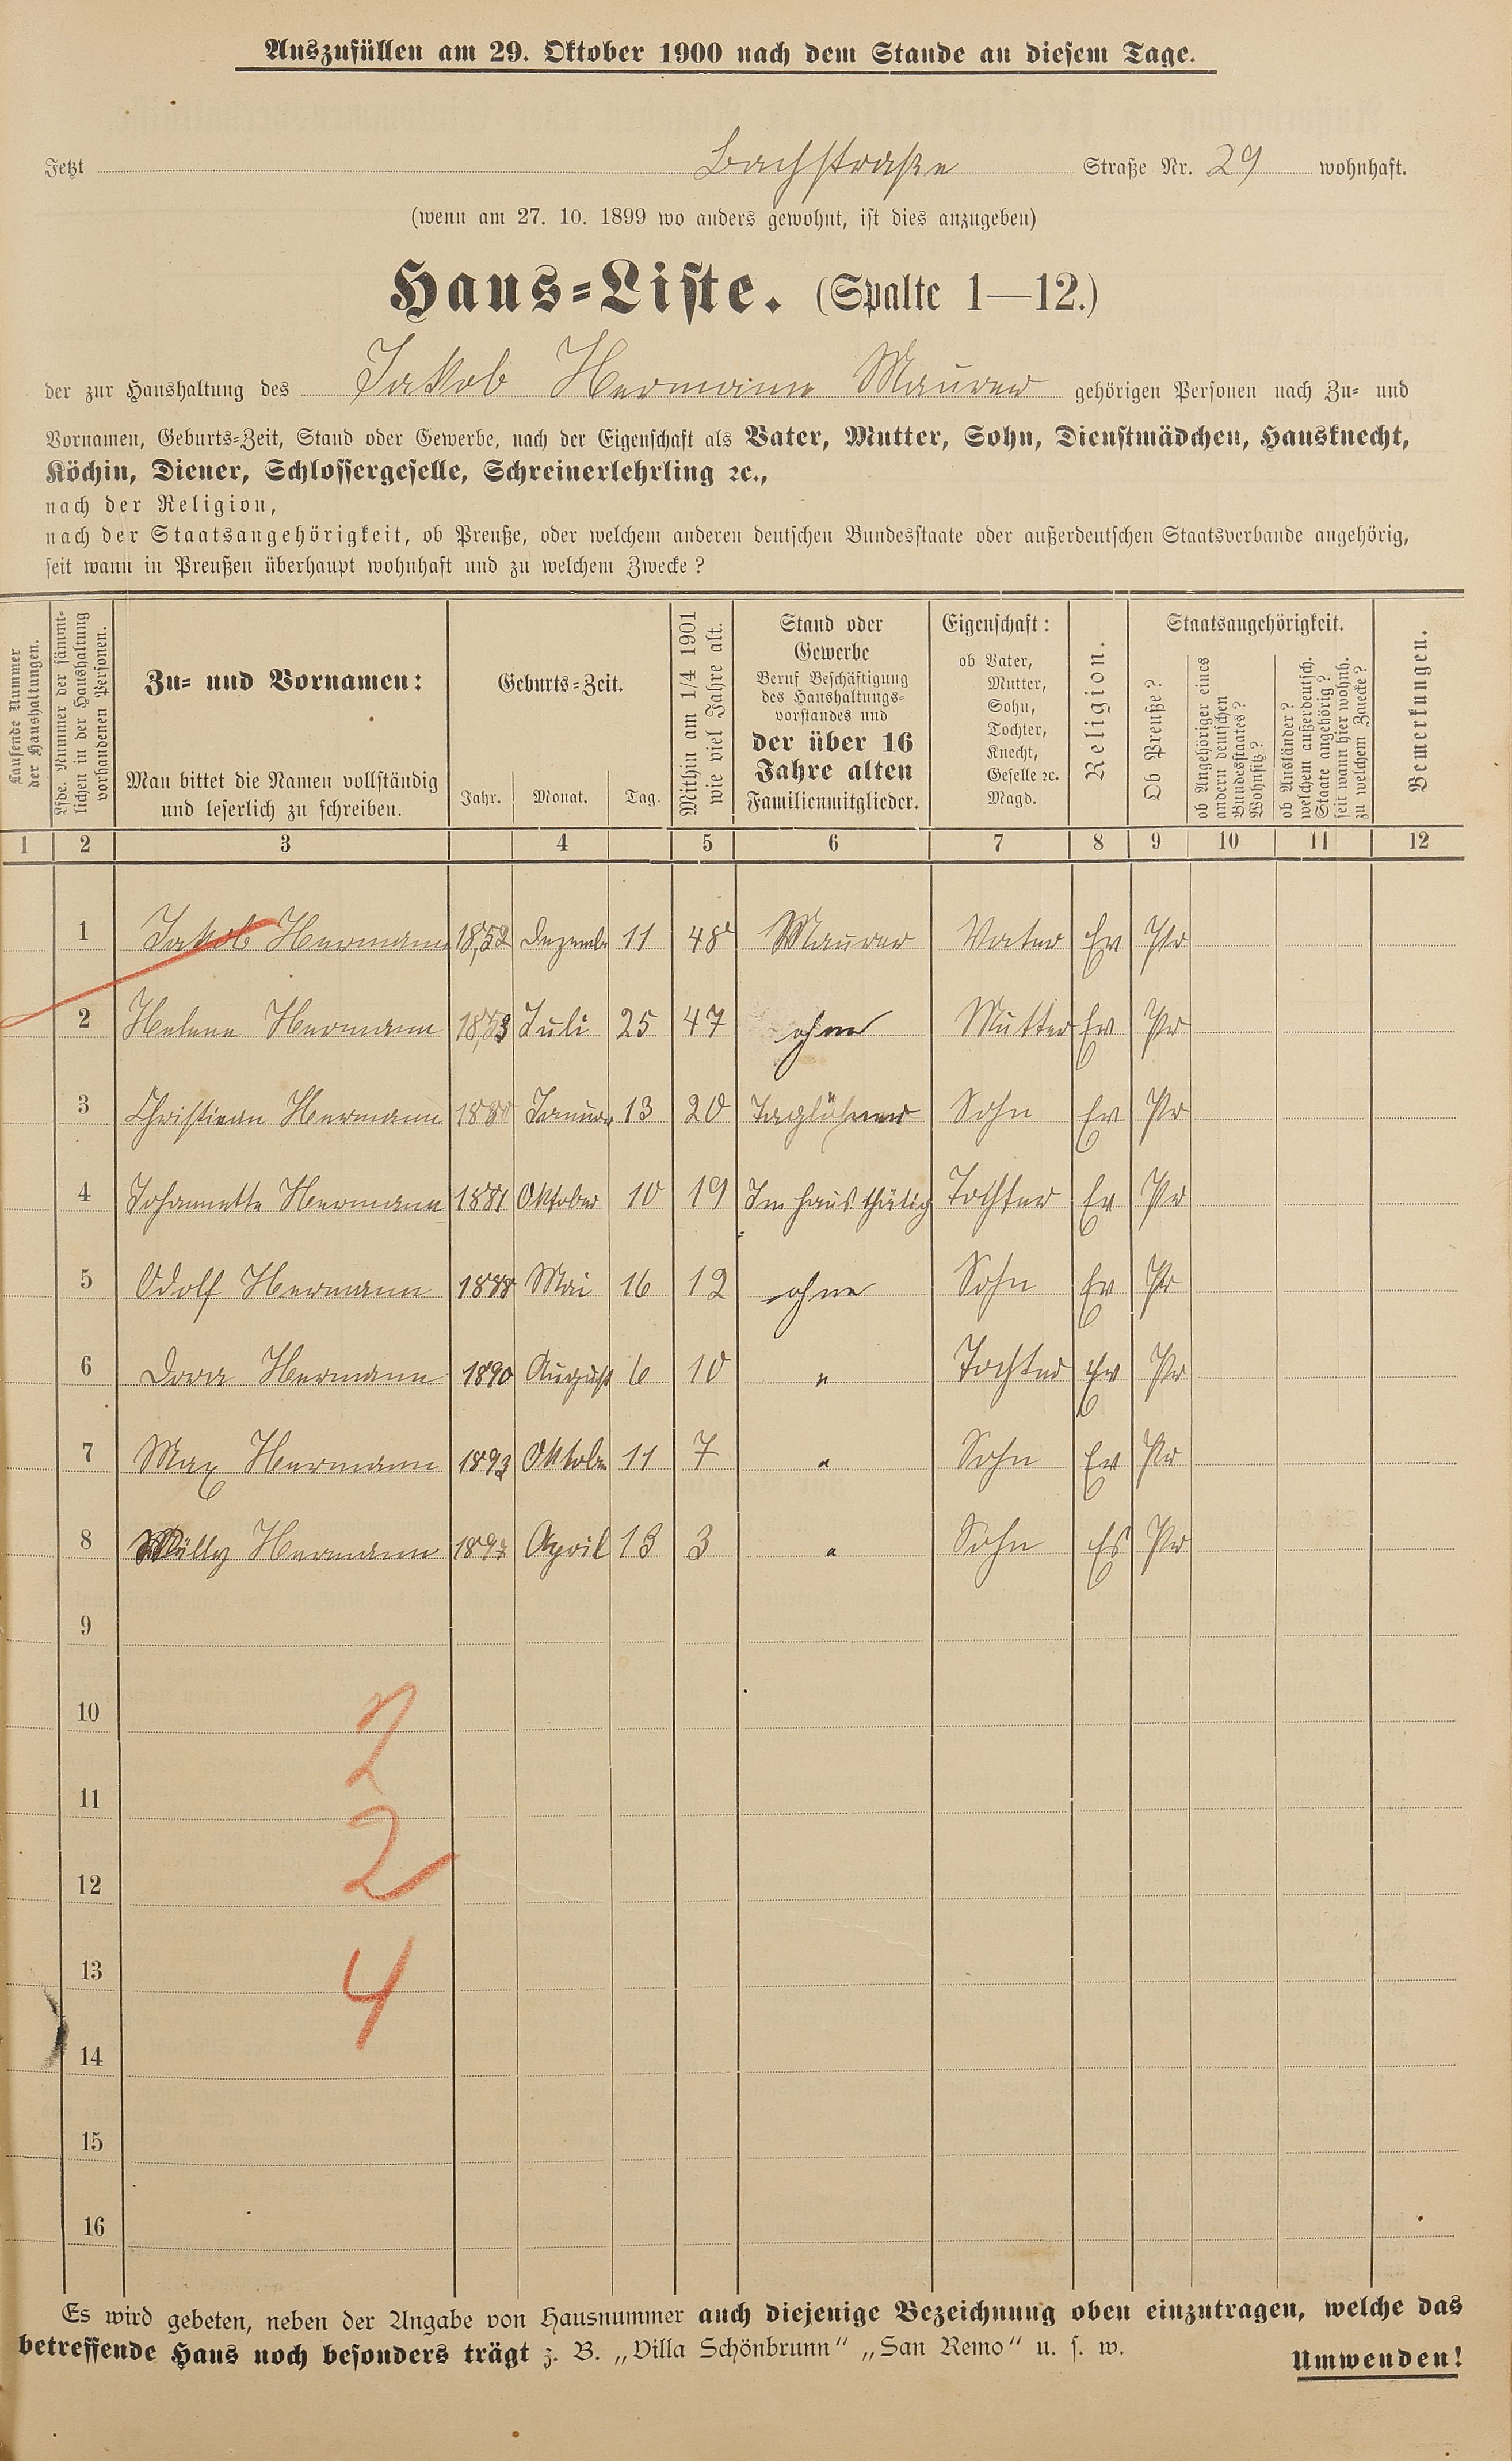 Auszufüllen am 29. Oktober 1900 nach dem Stande an diesem Tage.
Jetzt Bachstraße Straße Nr. 29 wohnhaft.
(wenn am 27. 10. 1899 wo anders gewohnt, ist dies anzugeben)
Haus-Liste. (Spalte 1—12.)
der zur Haushaltung des Jakob Hermann Maurer gehörigen Personen nach Zu- und
Vornamen, Geburts-Zeit, Stand oder Gewerbe, nach der Eigenschaft als Vater, Mutter, Sohn, Dienstmädchen, Hausknecht,
Köchin, Diener, Schlossergeselle, Schreinerlehrling ꝛc.,
nach der Religion,
nach der Staatsangehörigkeit, ob Preuße, oder welchem anderen deutschen Bundesstaate oder außerdeutschen Staatsverbande angehörig,
seit wann in Preußen überhaupt wohnhaft und zu welchem Zwecke?
Laufende Nummer
der Haushaltungen.
Lfde. Nummer der sämmt-
lichen in der Haushaltung
vorhandenen Personen.
Zu- und Vornamen:
Man bittet die Namen vollständig
und leserlich zu schreiben.
Geburts-Zeit.
Jahr. Monat. Tag.
Mithin am 1/4 1901
wie viel Jahre alt.
Stand oder
Gewerbe
Beruf Beschäftigung
des Haushaltungs-
vorstandes und
der über 16
Jahre alten
Familienmitglieder.
Eigenschaft:
ob Vater,
Mutter,
Sohn,
Tochter,
Knecht,
Geselle ꝛc.
Magd.
Religion.
Staatsangehörigkeit.
Ob Preuße?
ob Angehöriger eines
andern deutschen
Bundesstaates?
Wohnsitz?
ob Ausländer?
welchem außerdeutsch.
Staate angehörig?
seit wann hier wohnh.
zu welchem Zwecke?
Bemerkungen.
1 2 3 4 5 6 7 8 9 10 11 12
1 Jakob Hermann 1852 Dezemb 11 48 Maurer Vater Ev Pr
2 Helene Hermann 1853 Juli 25 47 ohne Mutter Ev Pr
3 Christian Hermann 1880 Januar 13 20 Taglöhner Sohn Ev Pr
4 Johannette Hermann 1881 Oktober 10 19 Im Haus thätig Tochter Ev Pr
5 Adolf Hermann 1888 Mai 16 12 ohne Sohn Ev Pr
6 Dora Hermann 1890 August 6 10 " Tochter Ev Pr
7 Max Hermann 1893 Oktober 11 7 " Sohn Ev Pr
8 Willy Hermann 1897 April 13 3 " Sohn Ev Pr
9
10
2
11
12 2
13 4
14
15
16
Es wird gebeten, neben der Angabe von Hausnummer auch diejenige Bezeichnung oben einzutragen, welche das
betreffende Haus noch besonders trägt z. B. „Villa Schönbrunn“ „San Remo“ u. s. w.
Umwenden!